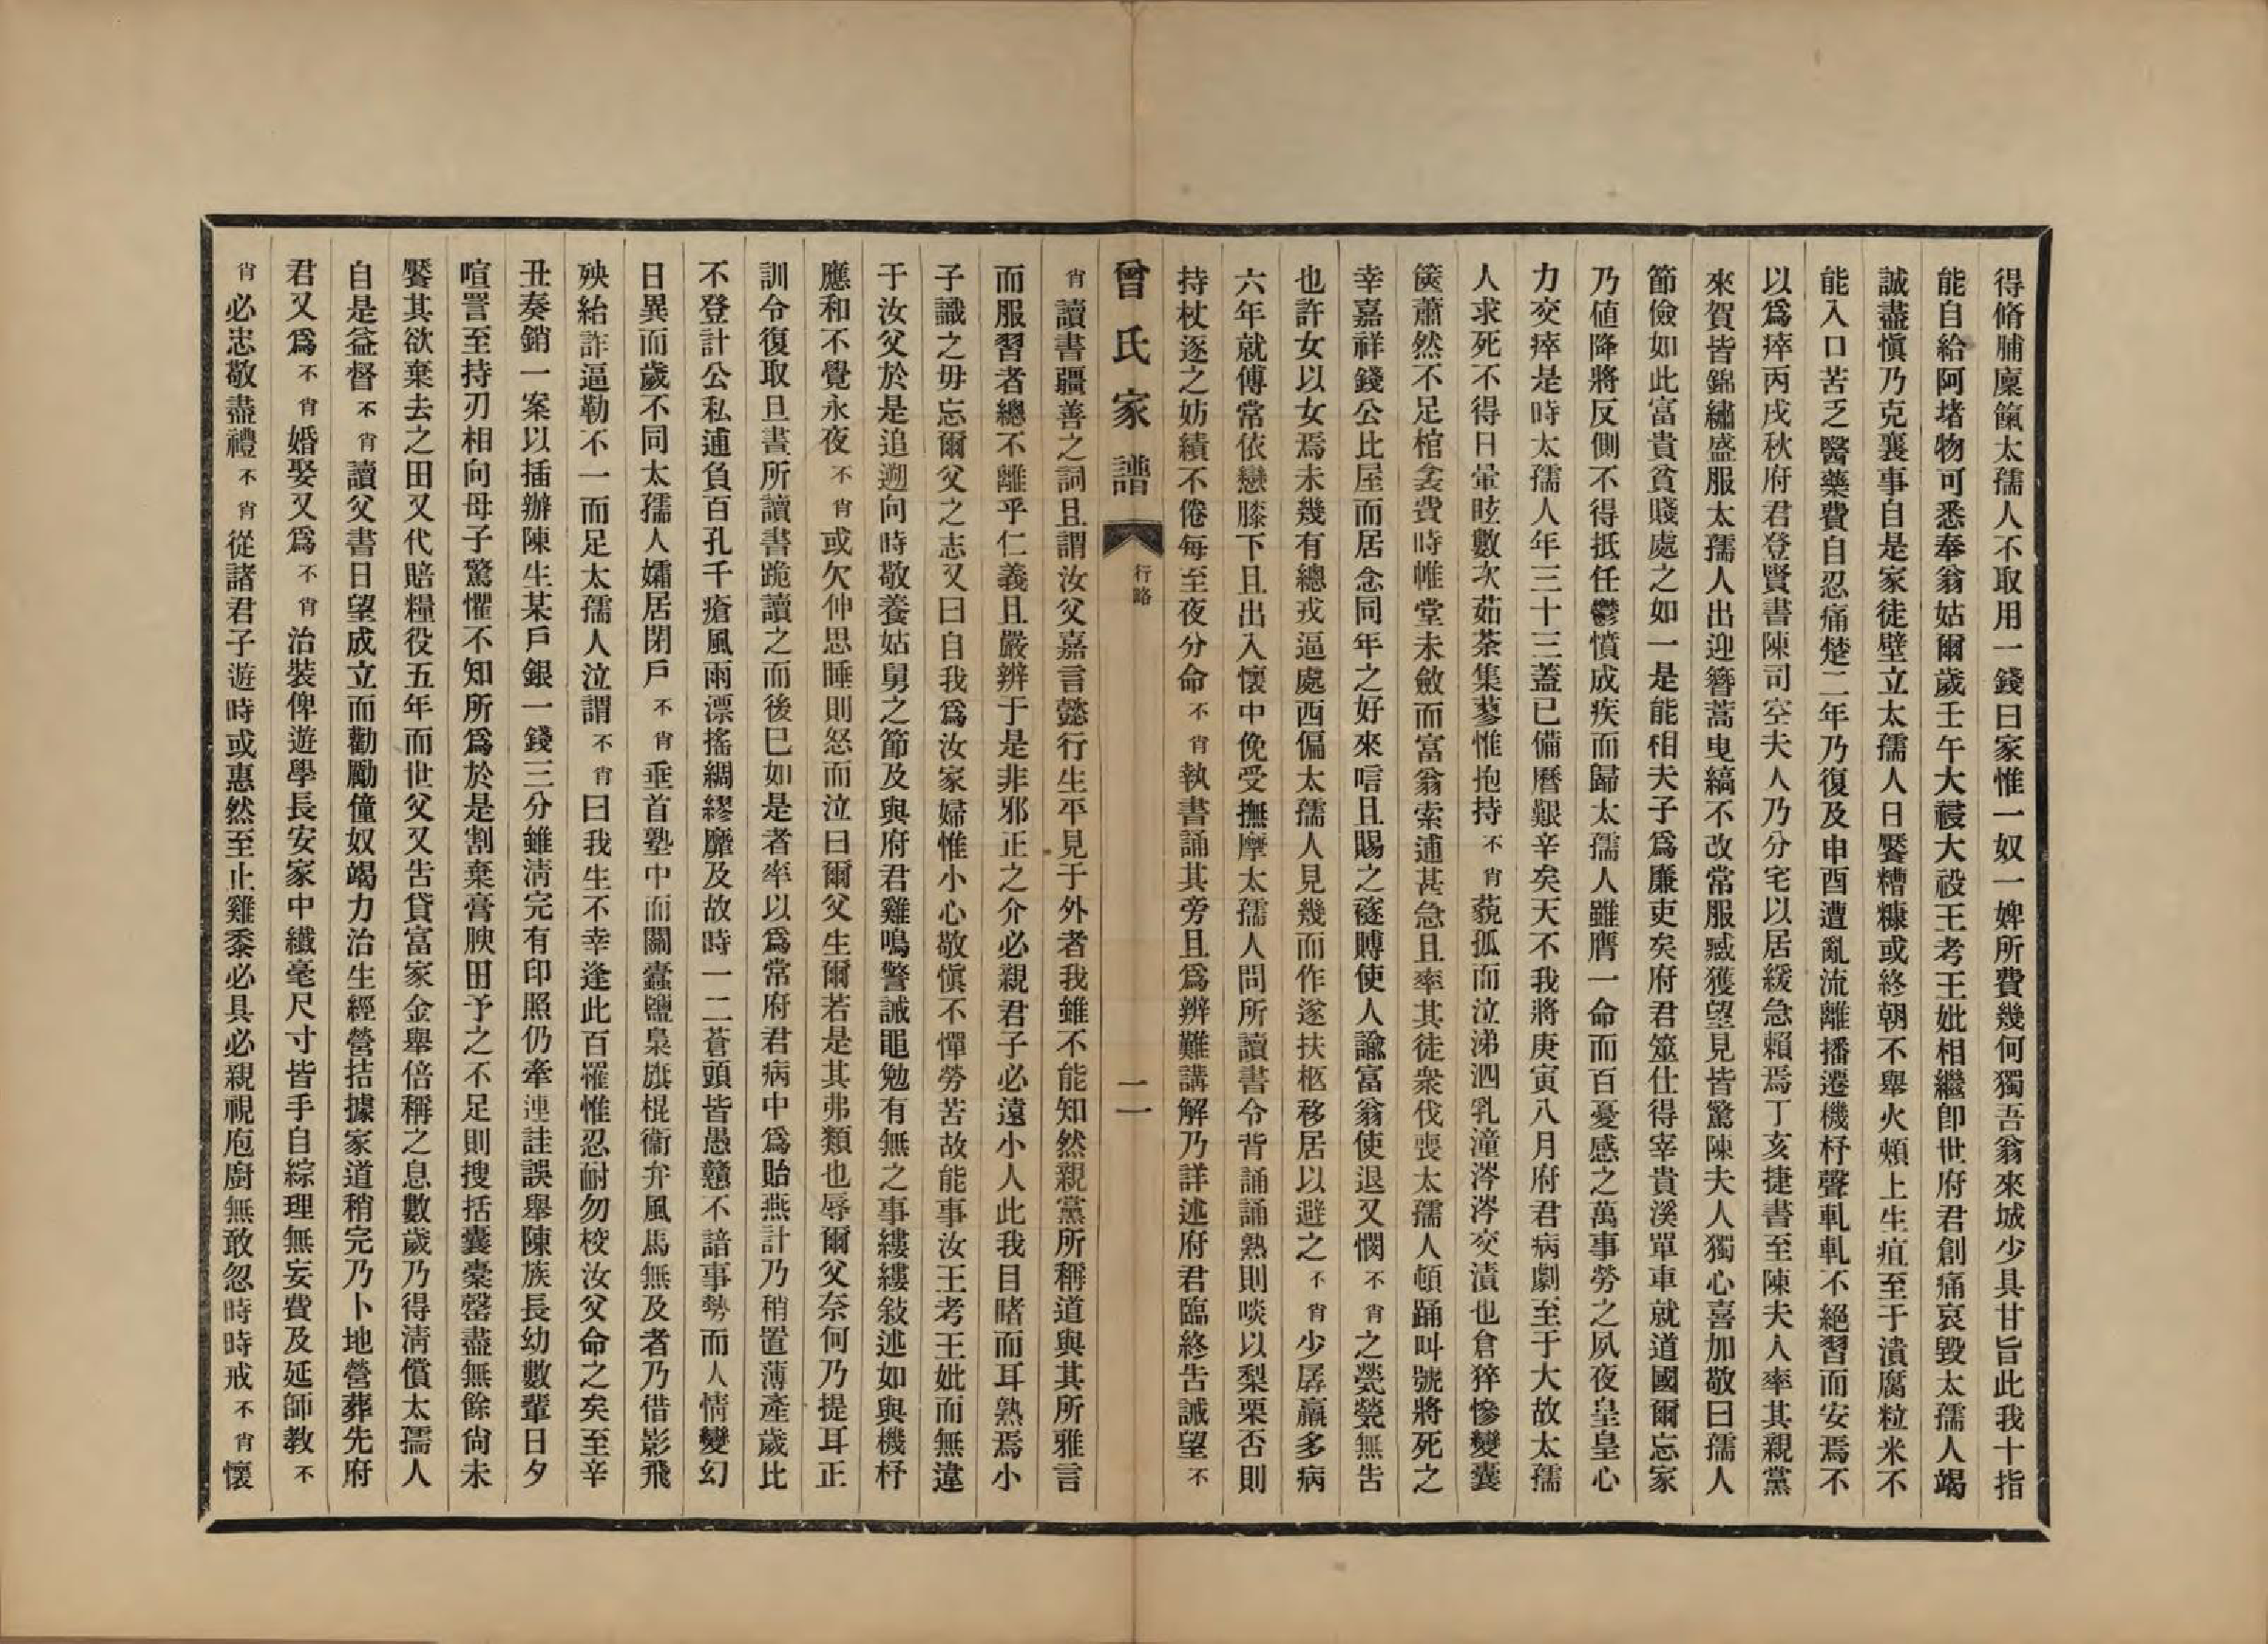 得脩脯廩餼太孺人不取用一錢曰家惟一奴一婢所費幾何獨吾翁來城少具甘旨此我十指
能自給阿堵物可悉奉翁姑爾歲壬午大祲大祲王考王妣相繼卽世府君創痛哀毀太孺人竭
誠盡愼乃克襄事自是家徒壁立太孺人日饜糟糠或終朝不舉火頰上生疽至于潰腐粒米不
能入口苦乏醫藥費自忍痛楚二年乃復及申酉遭亂流離播遷機杼聲軋軋不絕習而安焉不
以爲瘁丙戌秋府君登賢書陳司空夫人乃分宅以居緩急賴焉丁亥捷書至陳夫人率其親黨
來賀皆錦繡盛服太孺人出迎簪蒿曳縞不改常服臧獲望見皆驚陳夫人獨心喜加敬曰孺人
節儉如此富貴貧賤處之如一是能相夫子爲廉吏矣府君筮仕得宰貴溪單車就道國爾忘家
乃値降將反側不得抵任鬱憤成疾而歸太孺人雖膺一命而百憂感之萬事勞之夙夜皇皇心
力交瘁是時太孺人年三十三蓋已備曆艱辛矣天不我將庚寅八月府君病劇至于大故太孺
人求死不得日暈眩數次茹荼集蓼惟抱持不肖藐孤而泣涕泗乳湩涔涔交漬也倉猝慘變囊
篋蕭然不足棺衾費時帷堂未斂而富翁索逋甚急且率其徒衆伐喪太孺人頓踊叫號將死之
幸嘉祥錢公比屋而居念同年之好來唁且賜之襚賻使人諭富翁使退又憫不肖之煢煢無告
也許女以女焉未幾有總戎逼處西偏太孺人見幾而作遂扶柩移居以避之不肖少孱羸多病
六年就傅常依戀膝下且出入懷中俛受撫摩太孺人問所讀書令背誦誦熟則啖以梨栗否則
持杖逐之妨績不倦每至夜分命不肖執書誦其旁且爲辨難講解乃詳述府君臨終告誡望不
曾氏家譜 行略 二一
肖讀書彊善之詞且謂汝父嘉言懿行生平見于外者我雖不能知然親黨所稱道與其所雅言
而服習者總不離乎仁義且嚴辨于是非邪正之介必親君子必遠小人此我目睹而耳熟焉小
子識之毋忘爾父之志又曰自我爲汝家婦惟小心敬愼不憚勞苦故能事汝王考王妣而無違
于汝父於是追遡向時敬養姑舅之節及與府君雞鳴警誡黽勉有無之事縷縷敍述如與機杼
應和不覺永夜不肖或欠伸思睡則怒而泣曰爾父生爾若是其弗類也辱爾父奈何乃提耳正
訓令復取旦晝所讀書跪讀之而後已如是者率以爲常府君病中爲貽燕計乃稍置薄產歲比
不登計公私逋負百孔千瘡風雨漂搖綢繆靡及故時一二蒼頭皆愚戇不諳事勢而人情變幻
日異而歲不同太孺人孀居閉戶不肖垂首塾中而關蠹鹽梟旗棍衞弁風馬無及者乃借影飛
殃紿詐逼勒不一而足太孺人泣謂不肖曰我生不幸逢此百罹惟忍耐勿校汝父命之矣至辛
丑奏銷一案以插辦陳生某戶銀一錢三分雖淸完有印照仍牽連詿誤舉陳族長幼數輩日夕
喧詈至持刃相向母子驚懼不知所爲於是割棄膏腴田予之不足則搜括囊橐罄盡無餘尙未
饜其欲棄去之田又代賠糧役五年而世父又告貸富家金舉倍稱之息數歲乃得淸償太孺人
自是益督不肖讀父書日望成立而勸勵僮奴竭力治生經營拮據家道稍完乃卜地營葬先府
君又爲不肖婚娶又爲不肖治裝俾遊學長安家中纖毫尺寸皆手自綜理無妄費及延師教不
肖必忠敬盡禮不肖從諸君子遊時或惠然至止雞黍必具必親視庖廚無敢忽時時戒不肖懷